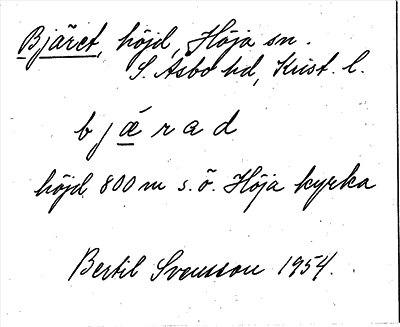 Bjäret, höjd, Höja sn.
S. Åsbo hd, Krist. l.
b j a ́ r a d
höjd 800 m s.ö. Höja kyrka
Bertil Svensson 1954.